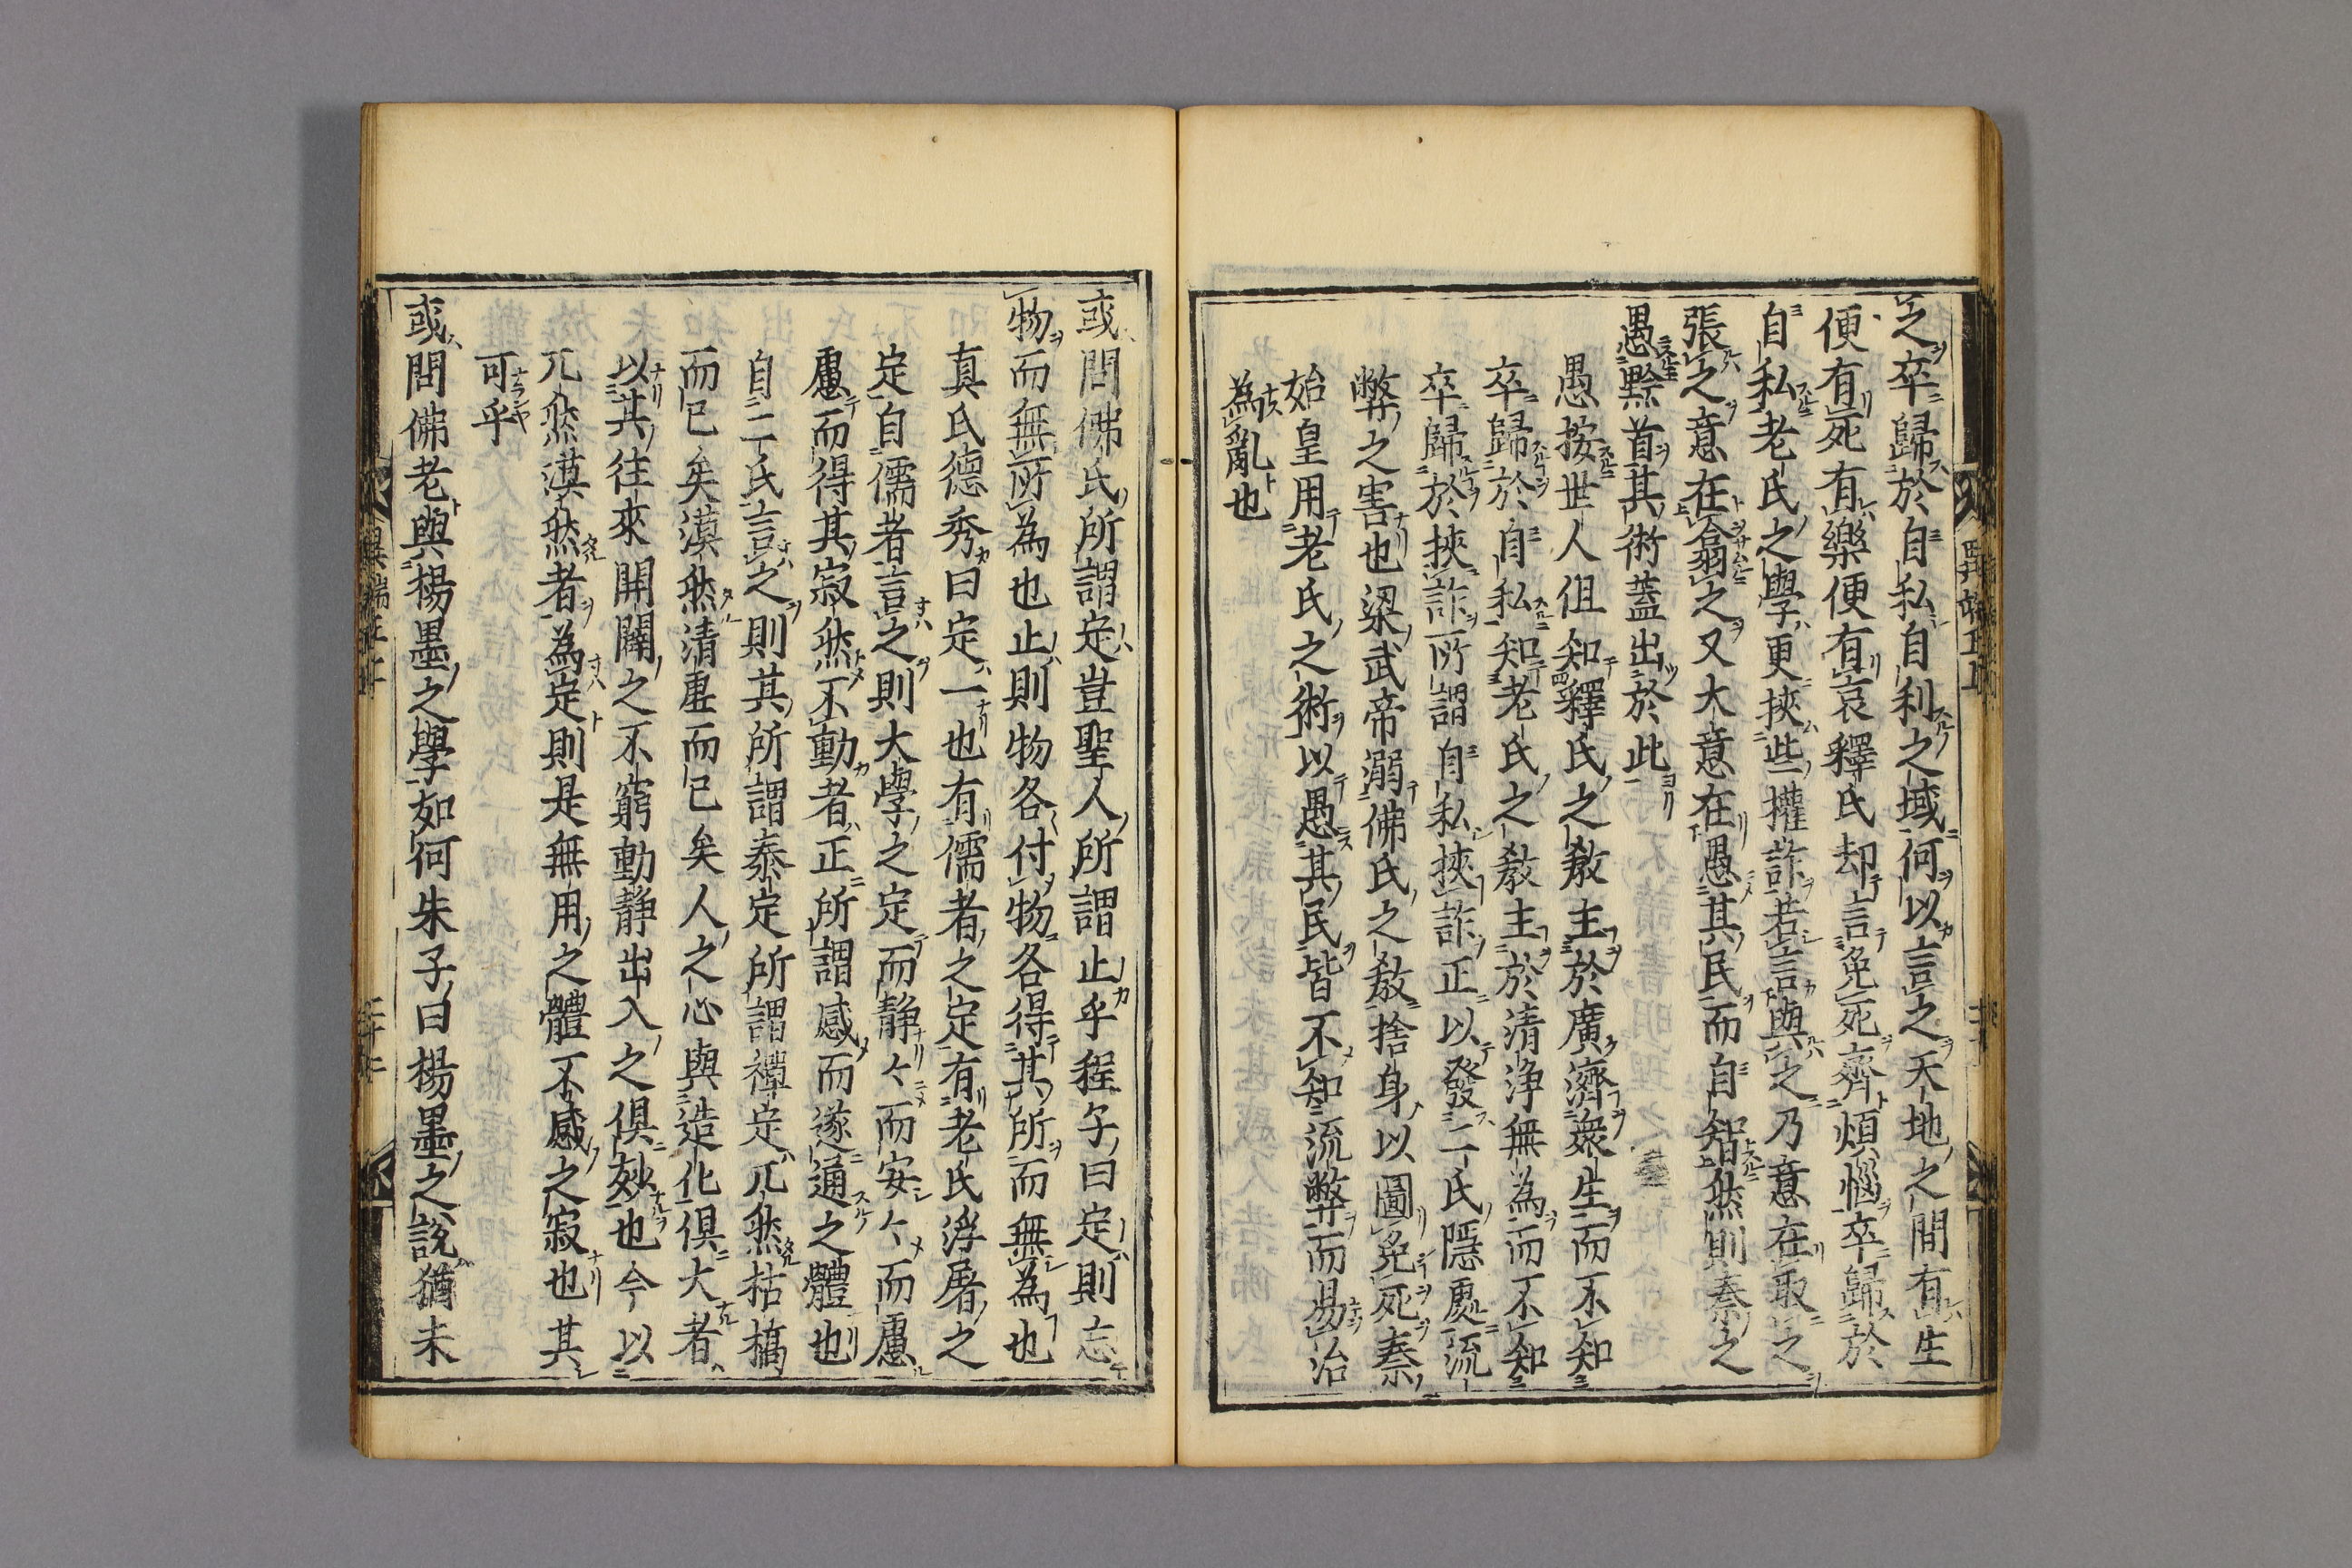 之卒歸於自私自利之域何以言之天地之間有生
便有死有樂便有哀釋氏却言免死齊煩惱卒歸於
自私老氏之學更挾些權詐若言與之乃意在取之
張之意在翕之又大意在愚其民而自智然則秦之
愚黔首其術蓋出於此
愚按世人但知釋氏之教主於廣濟衆生而不知
卒歸於自私知老氏之教主於清浄無為而不知
卒歸於挾詐所謂自私挾詐正以發二氏隱處流
弊之害也梁武帝溺佛氏之教捨身以圖免死秦
始皇用老氏之術以愚其民皆不知流弊而易治
為亂也
或問佛氏所謂定豈聖人所謂止乎程子曰定則忘
物而無所為也止則物各付物各得其所而無為也
真氏德秀曰定一也有儒者之定有老氏浮屠之
定自儒者言之則大學之定而静々而安々而慮
慮而得其寂然不動者正所謂感而遂通之體也
自二氏言之則其所謂泰定所謂禅定兀然枯槁
而已矣漠然清虚而已矣人之心與造化俱大者
以其往來開闔之不窮動静出入之俱玅也今以
兀然漠然者為定則是無用之體不感之寂也其
可乎
或問佛老與楊墨之學如何朱子曰楊墨之說猶未